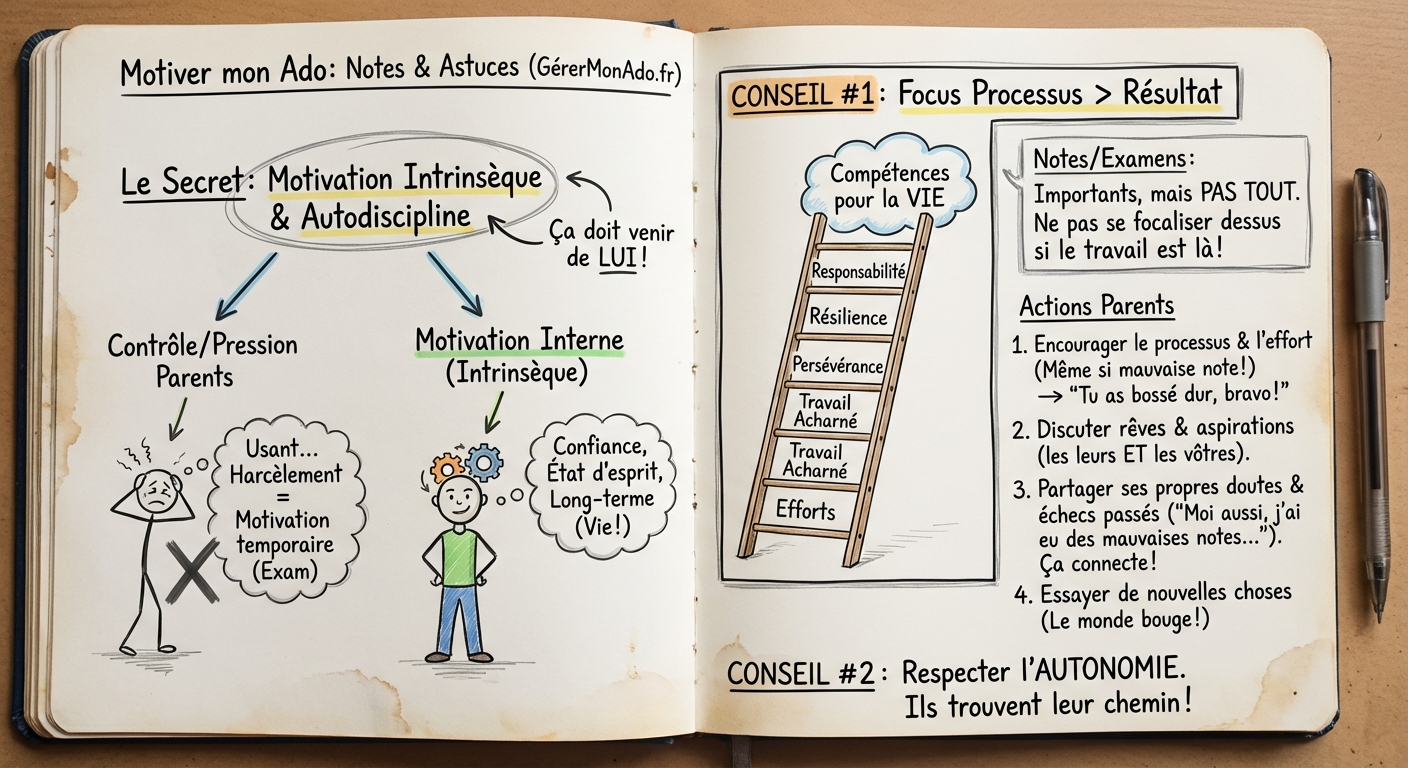 Motiver mon Ado: Notes & Astuces (GérerMonAdo.fr)
Le Secret: Motivation Intrinsèque
& Autodiscipline
Ça doit venir
de LUI!
Contrôle/Pression
Parents
Usant...
Harcèlement
=
Motivation
temporaire
(Exam)
Motivation Interne
(Intrinsèque)
Confiance,
État d'esprit,
Long-terme
(Vie!)
CONSEIL #1: Focus Processus > Résultat
Compétences
pour la VIE
Responsabilité
Résilience
Persévérance
Travail
Acharné
Travail
Acharné
Efforts
Notes/Examens:
Importants, mais PAS TOUT.
Ne pas se focaliser dessus
si le travail est là!
Actions Parents
1. Encourager le processus & l'effort
(Même si mauvaise note!)
→ "Tu as bossé dur, bravo!"
2. Discuter rêves & aspirations
(les leurs ET les vôtres).
3. Partager ses propres doutes &
échecs passés ("Moi aussi, j'ai
eu des mauvaises notes...").
Ça connecte!
4. Essayer de nouvelles choses
(Le monde bouge!)
CONSEIL #2: Respecter l'AUTONOMIE.
Ils trouvent leur chemin!